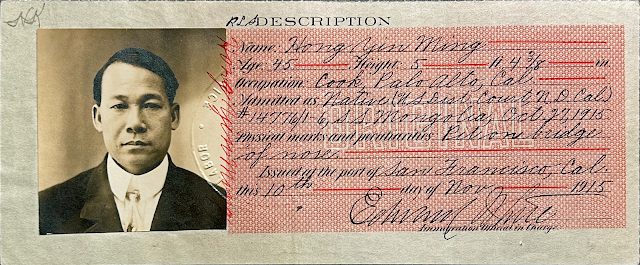 DESCRIPTION
Name: Hong Yin Ming
Age: 45 Height: 5 ft. 4 3/8 in
Occupation: Cook, Palo Alto, Cal.
Admitted as Native (US Dist. Court N.D. Cal)
#14776/1-6, S.S. Mongolia, Oct. 27, 1915
Physical marks and peculiarities: Pit on bridge
of nose.
ORIGINAL
Issued at the port of San Francisco, Cal.
this 10th day of Nov 1915
Edward White
Immigration Official in Charge.
LABOR